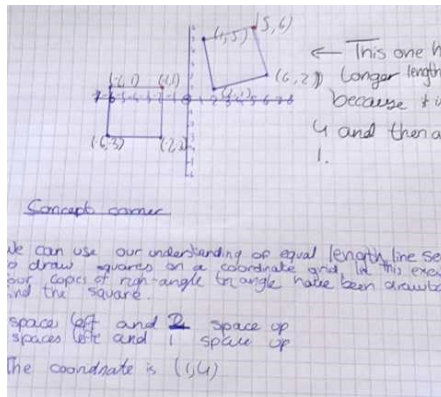 (1,5) (5,6)
(6,2)
← This one h
Longer length
because
4 and then a
1.
(-6,1)
7 6 5 4 3 2 1 0 1 2 3 4 5 6 7 8
(-6,-3)
Concept corner
We can use our understanding of equal length line se
o draw squares on a coordinate grid, in this exa
our copies of righ-angle triangle have been draw
nd the square.
space left and 2 space up
spaces left and 1 space up
The coordnate is (1,4)